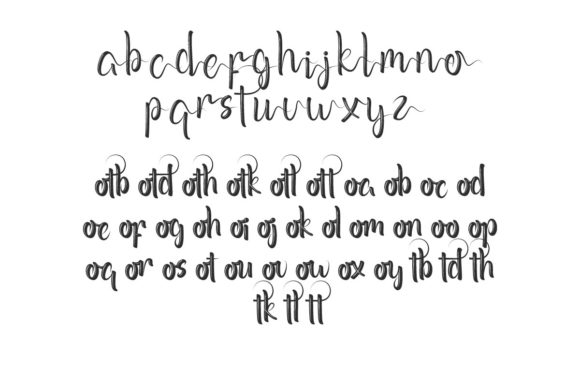 abcdefghijklmno
pqrstuvwxyz
otb otd oth otk otl ott oa ob oc od
oe of og oh oi oj ok ol om on oo op
oq or os ot ou ov ow ox oy tb td th
tk tl tt